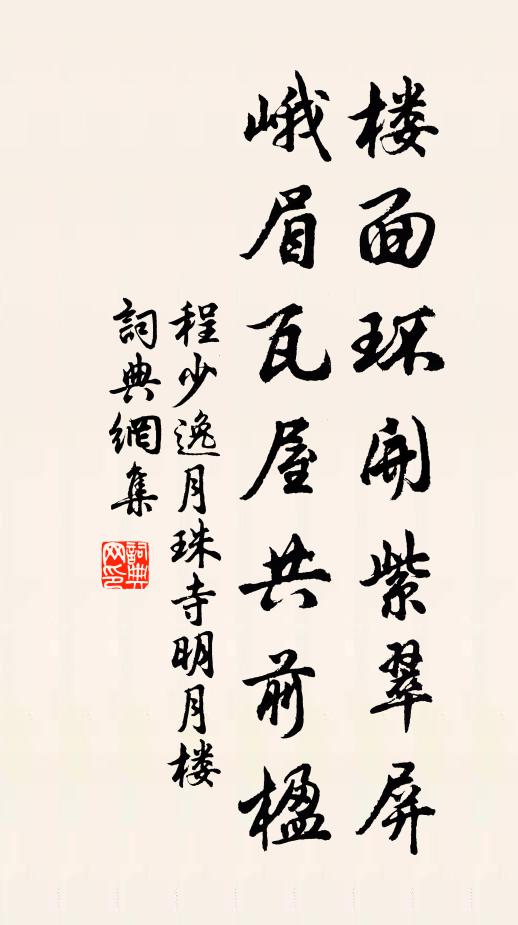 楼面环開紫翠屏
峨眉瓦屋共前楹
程少逸月珠寺明月楼
詞典網集
詞典网印